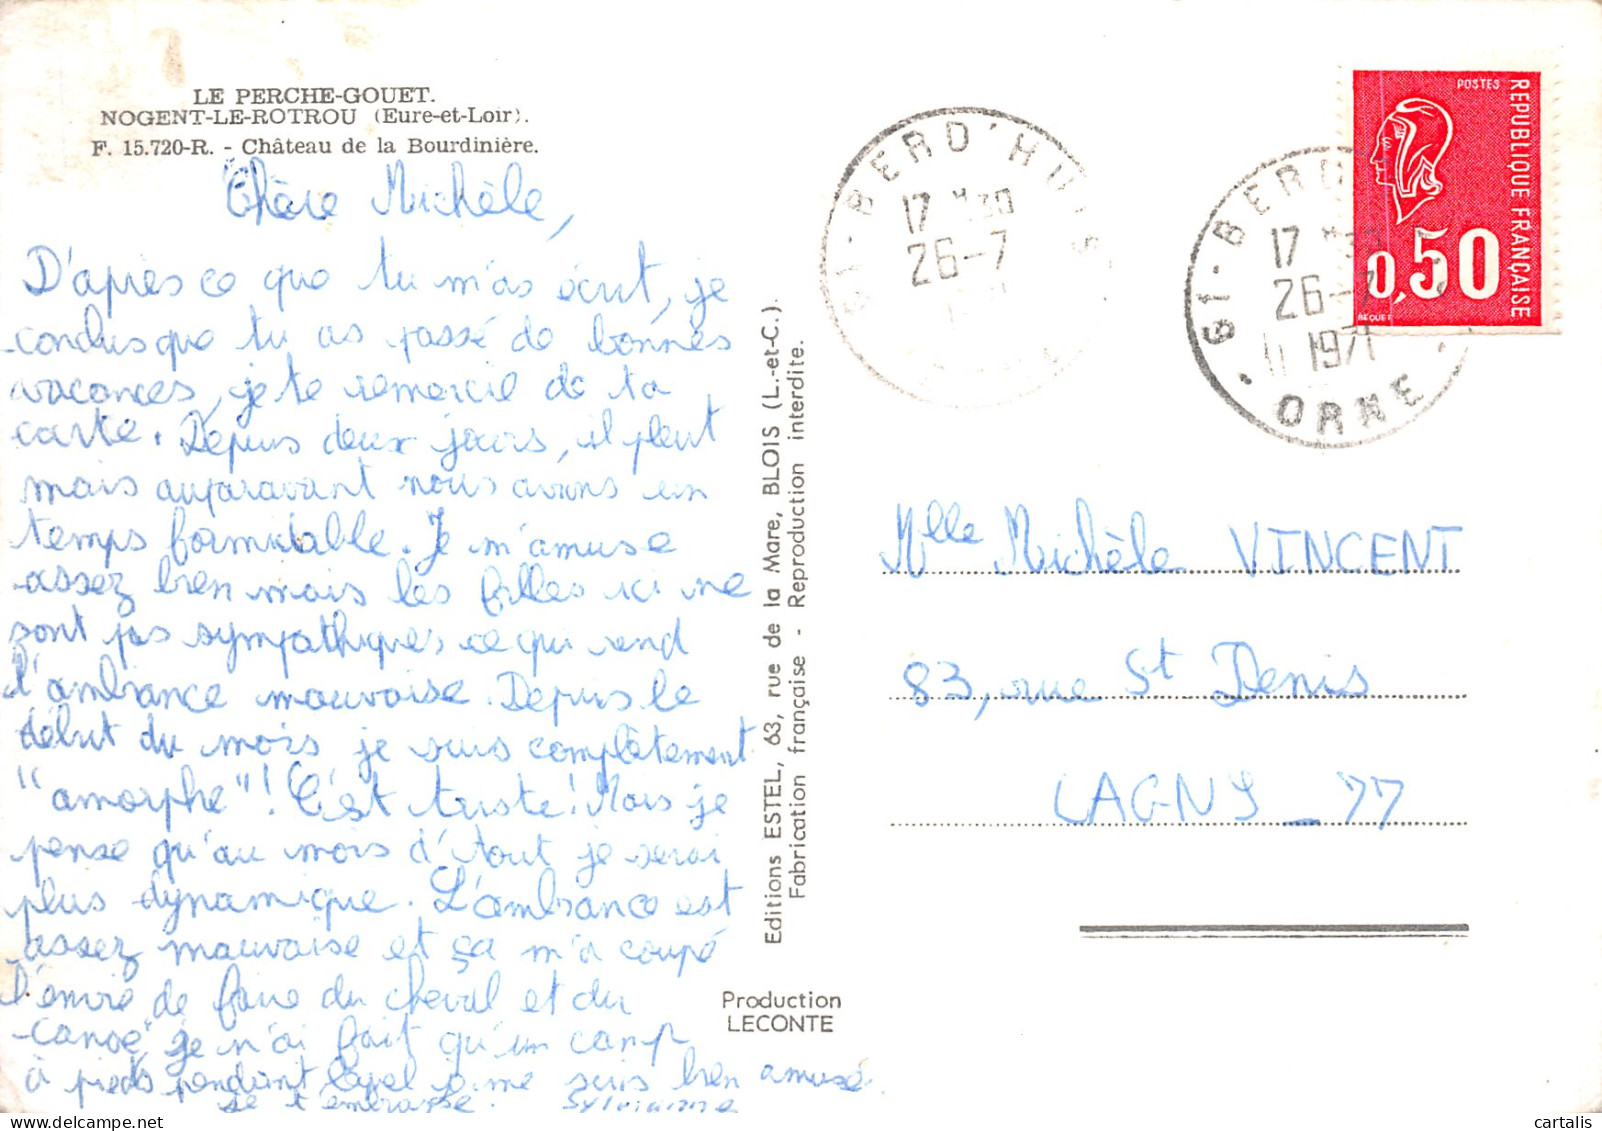 LE PERCHE-GOUET.
NOGENT-LE-ROTROU (Eure-et-Loir).
F. 15.720-R. - Château de la Bourdinière.
Chère Michèle,
D'après ce que tu m'as écrit, je
conclus que tu as passé de bonnes
vacances, je te remercie de ta
carte. Depuis deux jours, il pleut
mais auparavant nous avions un
temps formidable. Je m'amuse
assez bien mais les filles ici ne
sont pas sympathiques ce qui rend
l'ambiance mauvaise. Depuis le
début du mois je suis complètement
"amorphe"! C'est triste! Mais je
pense qu'au mois d'Aout je serai
plus dynamique. L'ambiance est
assez mauvaise et ça m'a coupé
l'envie de faire du cheval et du
canoë, je n'ai fait qu'un camp
à pieds pendant lequel je me suis bien amusé.
je t'embrasse. Sylvianne
Editions ESTEL, 63, rue de la Mare, BLOIS (L.-et-C.).
Fabrication française - Reproduction interdite.
Production
LECONTE
61-BERD'HUIS
17 H30
26-7
61-BERD
17 H30
26-7
1971
ORNE
POSTES
REPUBLIQUE FRANÇAISE
0,50
BEQUET
Mlle Michèle VINCENT
83, rue St Denis
LAGNY _ 77
© cartalis
delcampe.net